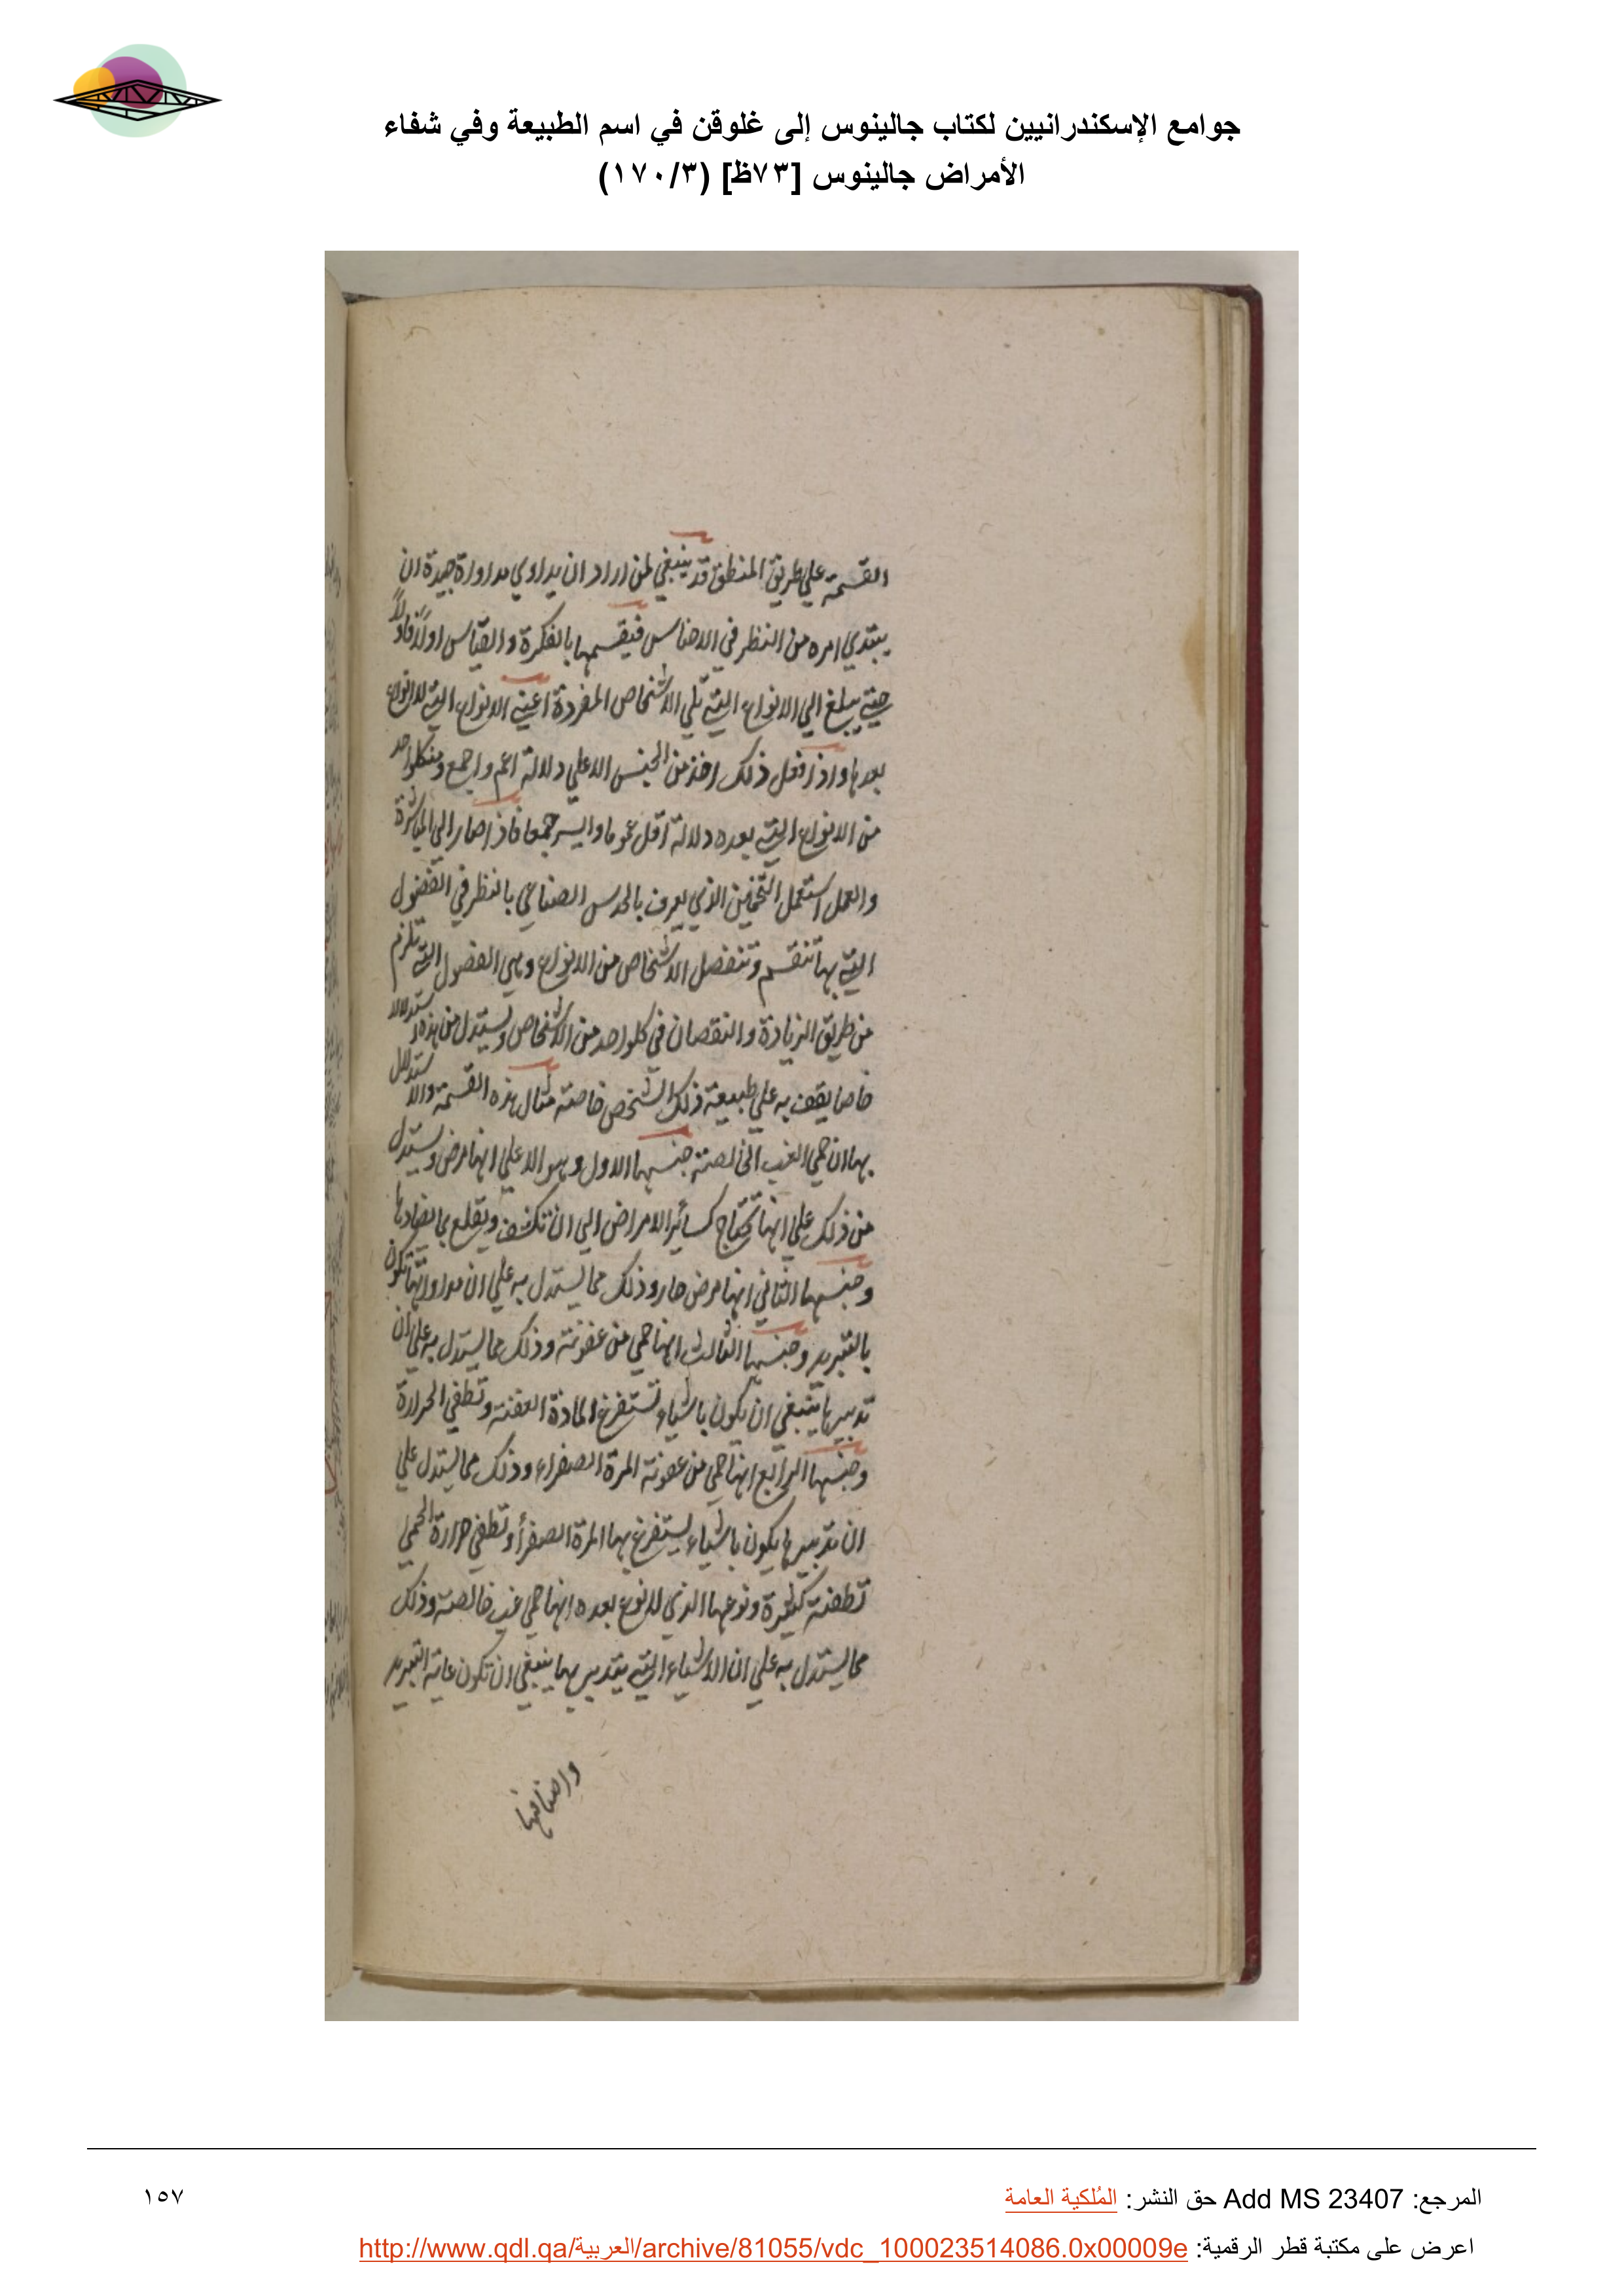 جوامع الإسكندرانيين لكتاب جالينوس إلى غلوقن في اسم الطبيعة وفي شفاء
الأمراض جالينوس [٧٣ظ] (١٧٠/٣)
القسمة علي طريق المنطق قد ينبغي لمن اراد ان يداوي مداواة جيدة ان
يبتدي امره من النظر في الاجناس فيقسمها بالفكرة والقياس اولا فاولا
حتي يبلغ الي الانواع التي تلي الاشخاص المفردة اعني الانواع التي لا انواع
بعدها واذا فعل ذلك اخذ من الجنس الاعلي دلالة اعم واجمع ومن كلواحد
من الانواع التي بعده دلالة اقل عموما وايسر جمعا فاذا صار الي المباشرة
والعمل استعمل التخمين الذي يعرف بالحدس الصناعي بالنظر في الفضول
التي بها تنقسم وتنفصل الاشخاص من الانواع وهي الفصول التي تلزم
من طريق الزيادة والنقصان في كلواحد من الاشخاص ويستدل من هذه استدلالا
خاصا يقف به علي طبيعة ذلك الشخص خاصة مثال هذه القسمة والاستدلال
بها ان حمي الغب الخالصة جنسها الاول وهو الاعلي انها مرض ويستدل
من ذلك علي انها تحتاج كسائر الامراض الي ان تكشف وتقلع بما يضادها
وجنسها الثاني انها مرض حار وذلك مما يستدل به علي ان مداواتها تكون
بالتبريد وجنسها الثالث انها حمي من عفونة وذلك مما يستدل به علي ان
تدبيرها ينبغي ان يكون باشياء تستفرغ المادة العفنة وتطفي الحرارة
وجنسها الرابع انها حمي من عفونة المرة الصفراء وذلك مما يستدل علي
ان تدبيرها يكون باشياء يستفرغ بها المرة الصفرأ وتطفي حرارة الحمي
تطفئة كثيرة ونوعها الذي لا نوع بعده انها حمي غب خالصة وذلك
مما يستدل به علي ان الاشياء التي يتدبر بها ينبغي ان تكون غاية التبريد
واصنافها
المرجع: Add MS 23407 حق النشر: المُلكية العامة
١٥٧
اعرض على مكتبة قطر الرقمية: http://www.qdl.qa/العربية/archive/81055/vdc_100023514086.0x00009e